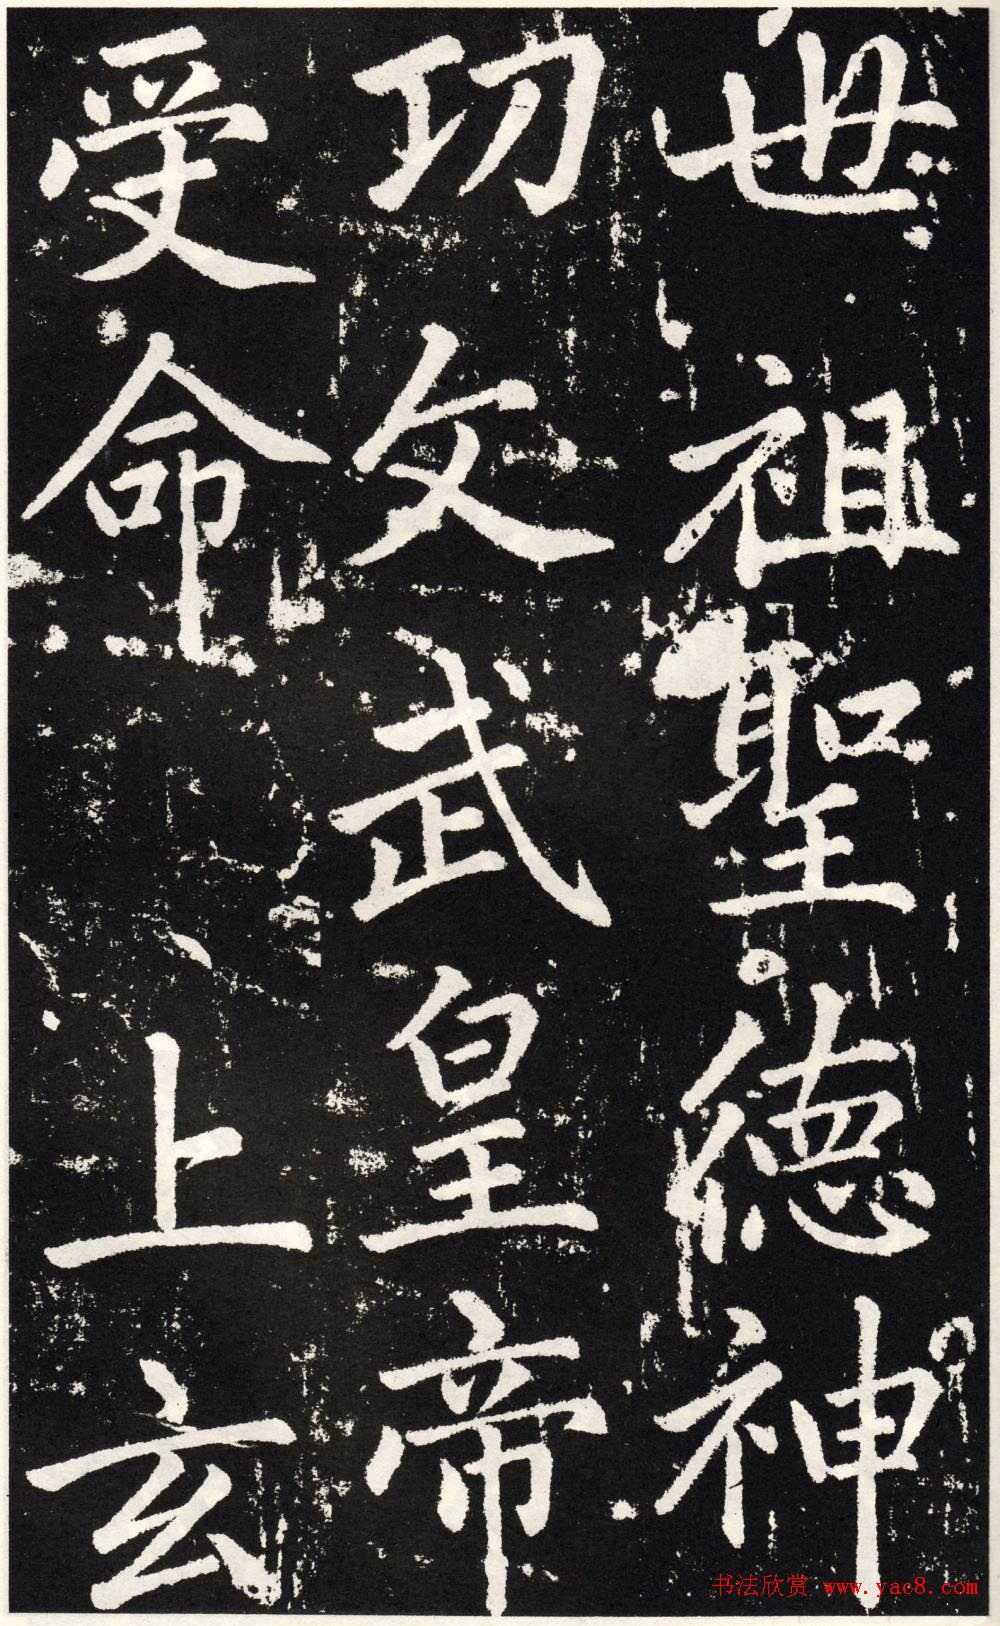 世祖聖德神
功文武皇帝
受命上玄
书法欣赏 www.yac8.com